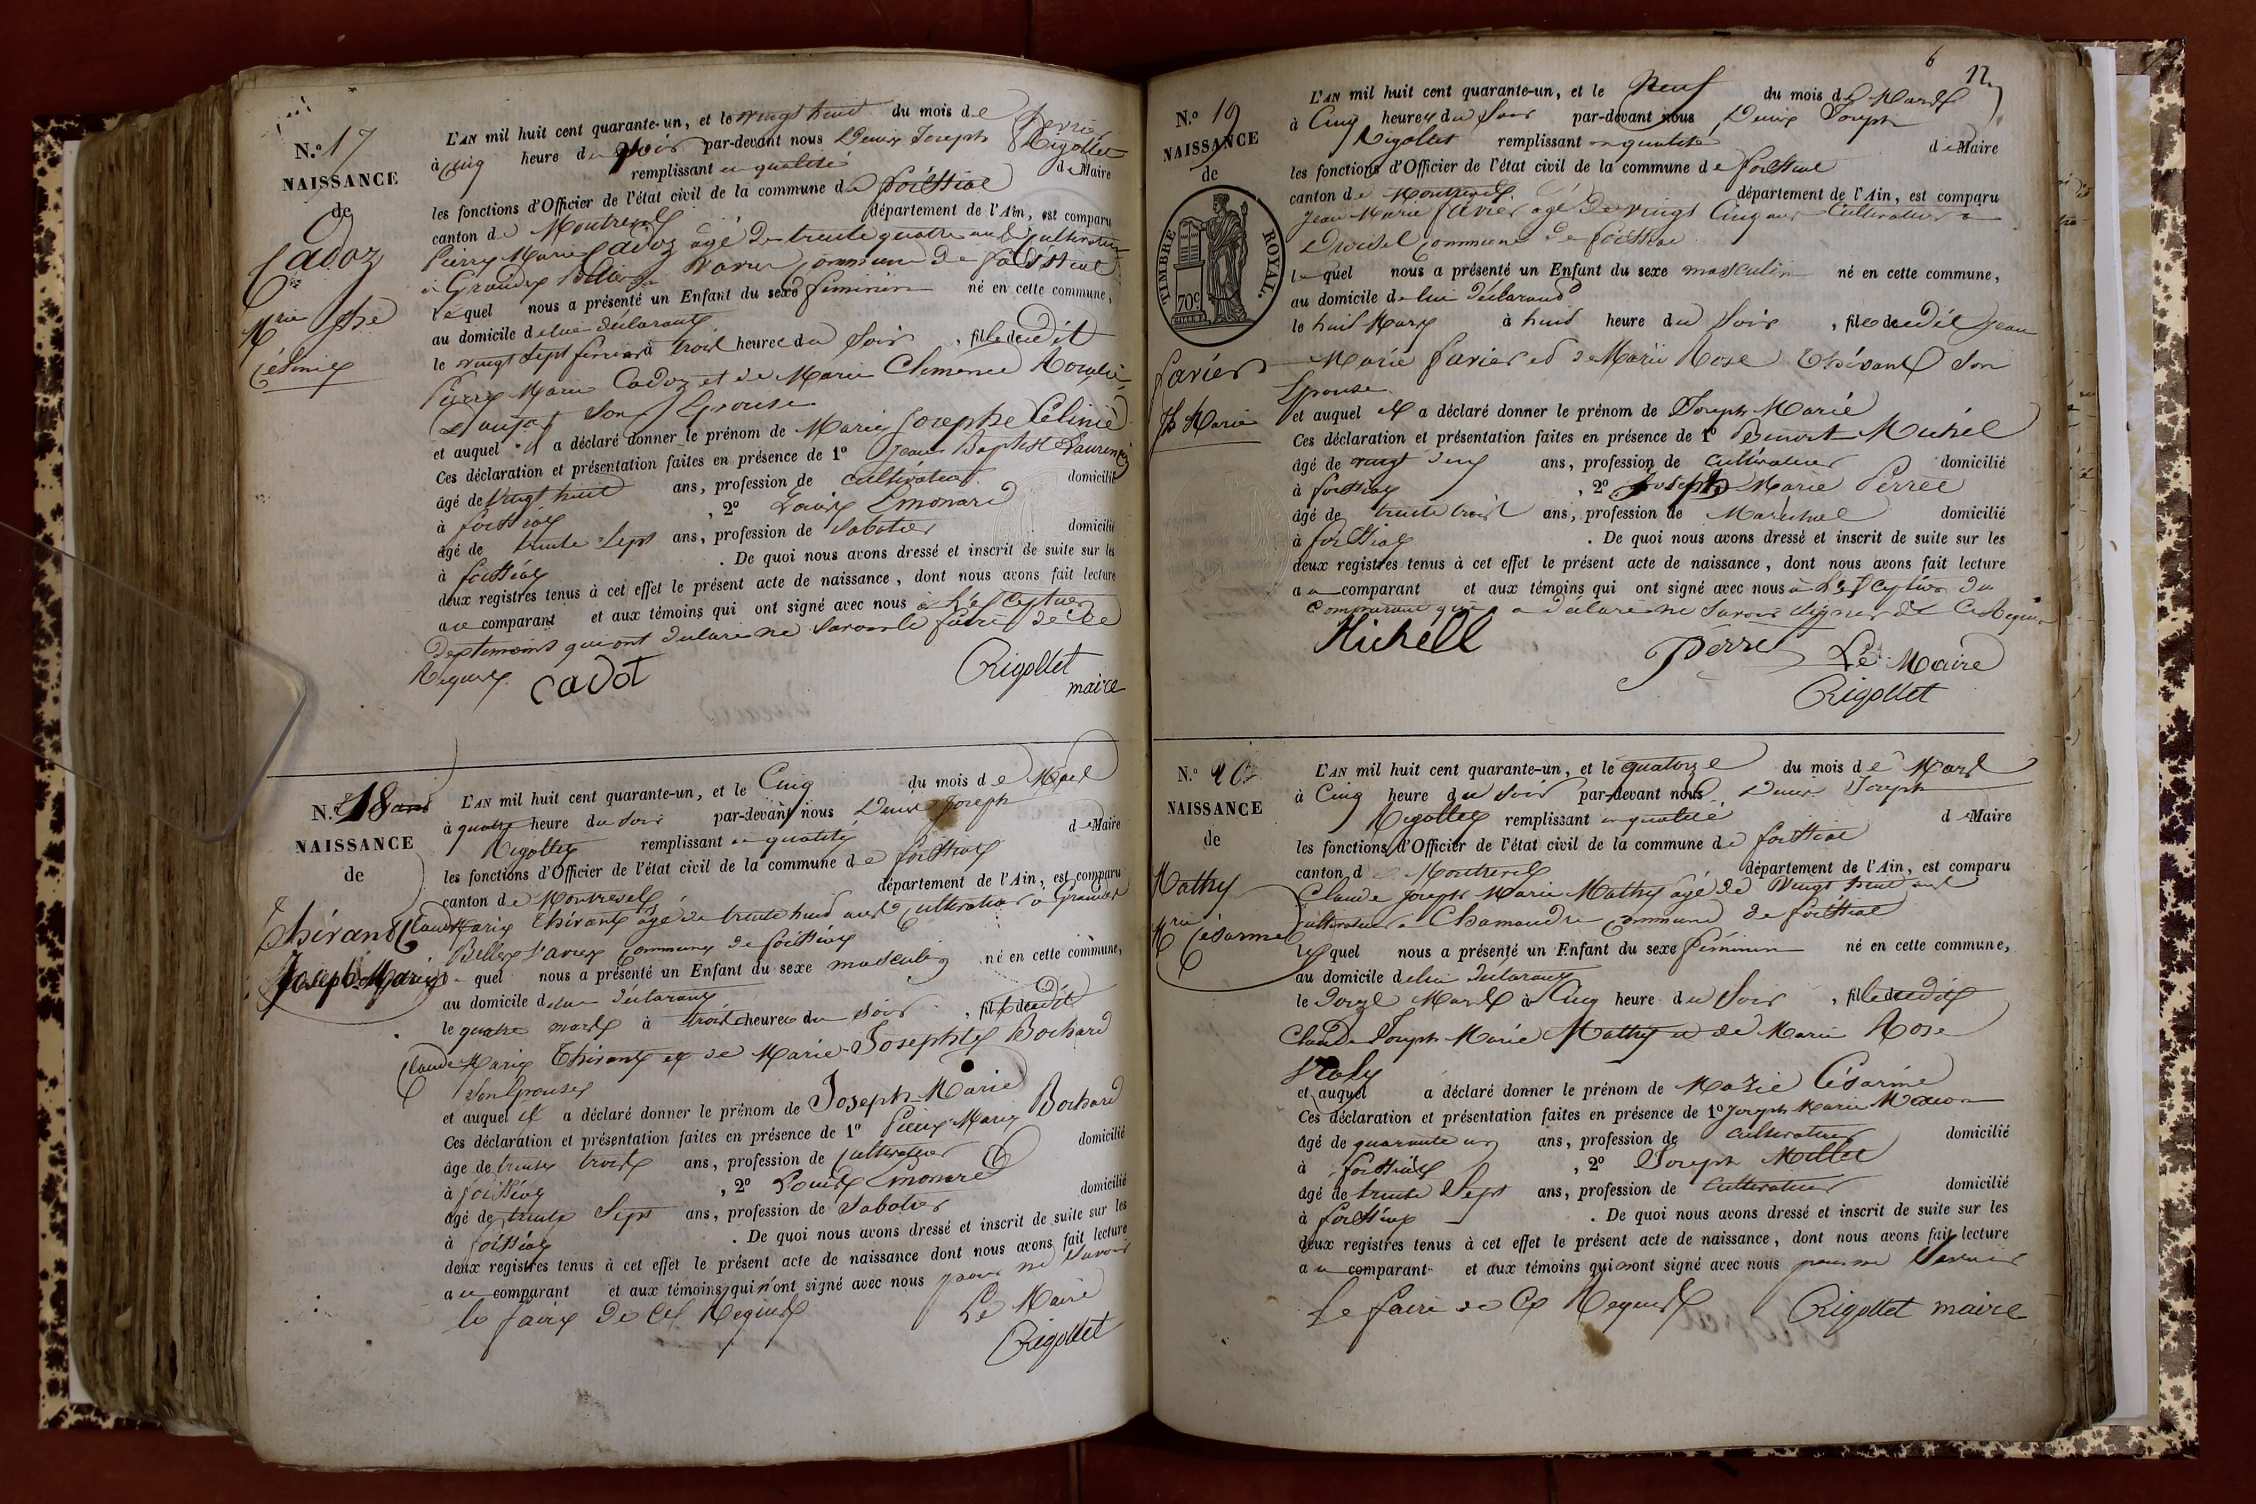 N.º 17
NAISSANCE
de
Cadoz
Mrie Jphe
Célinie
L'AN mil huit cent quarante-un, et le vingt huit du mois de fevrier
à Cinq heure du Soir par-devant nous Denis Joseph Rigollet
remplissant en qualité de Maire
les fonctions d'Officier de l'état civil de la commune de foissiat
canton de Montrevel département de l'Ain, est comparu
Pierre Marie Cadoz âgé de trente quatre ans Cultivateur
à Grandes commune de foissiat
lequel nous a présenté un Enfant du sexe féminin né en cette commune,
au domicile de lui déclarant
le vingt Sept fevrier à trois heures du Soir, fille dudit
Pierre Marie Cadoz et de Marie Clemence
son Epouse
et auquel il a déclaré donner le prénom de Marie Josephe Célinie
Ces déclaration et présentation faites en présence de 1º Jean Baptiste Laurency
âgé de vingt huit ans, profession de cultivateur domicilié
à foissiat, 2º Louis Emonard
âgé de trente Sept ans, profession de Sabotier domicilié
à foissiat. De quoi nous avons dressé et inscrit de suite sur les
deux registres tenus à cet effet le présent acte de naissance, dont nous avons fait lecture
au comparant et aux témoins qui ont signé avec nous à l'exception
des temoins qui ont déclaré ne savoir le faire de ce
Requis
cadot
Rigollet
maire
N.º 18
NAISSANCE
de
Thirant
Joseph Marie
L'AN mil huit cent quarante-un, et le Cinq du mois de Mars
à quatre heure du Soir par-devant nous Denis Joseph
Rigollet remplissant en qualité de Maire
les fonctions d'Officier de l'état civil de la commune de foissiat
canton de Montrevel département de l'Ain, est comparu
Claude Marie Thirant âgé de trente huit ans Cultivateur à Grandes
commune de foissiat
le quel nous a présenté un Enfant du sexe masculin né en cette commune,
au domicile de lui déclarant
le quatre mars à trois heures du soir, fils dudit
Claude Marie Thirant et de Marie Josephte Bochard
Son Epouse
et auquel il a déclaré donner le prénom de Joseph Marie
Ces déclaration et présentation faites en présence de 1º Pierre Marie Bochard
âgé de trente trois ans, profession de Cultivateur domicilié
à foissiat, 2º Louis Emonard
âgé de trente Sept ans, profession de Sabotier domicilié
à foissiat. De quoi nous avons dressé et inscrit de suite sur les
deux registres tenus à cet effet le présent acte de naissance dont nous avons fait lecture
au comparant et aux témoins qui n'ont signé avec nous pour ne Savoir
le faire de ce Requis
Le Maire
Rigollet
6 12
N.º 19
NAISSANCE
de
TIMBRE ROYAL.
70c
Favier
Jh Marie
L'AN mil huit cent quarante-un, et le Neuf du mois de Mars
à Cinq heures du Soir par-devant nous Denis Joseph
Rigollet remplissant en qualité de Maire
les fonctions d'Officier de l'état civil de la commune de foissiat
canton de Montrevel département de l'Ain, est comparu
Jean Marie favier âgé de vingt Cinq ans Cultivateur à
commune de foissiat
lequel nous a présenté un Enfant du sexe masculin né en cette commune,
au domicile de lui déclarant
le huit Mars à huit heure du Soir, fils dudit Jean
Marie favier et de Marie Rose Thévant Son
Epouse
et auquel il a déclaré donner le prénom de Joseph Marie
Ces déclaration et présentation faites en présence de 1º Michel
âgé de vingt deux ans, profession de cultivateur domicilié
à foissiat, 2º Joseph Marie Perret
âgé de trente trois ans, profession de Maréchal domicilié
à foissiat. De quoi nous avons dressé et inscrit de suite sur les
deux registres tenus à cet effet le présent acte de naissance, dont nous avons fait lecture
au comparant et aux témoins qui ont signé avec nous à l'exception du
Comparant qui a déclaré ne Savoir signer de ce Requis
Michell
Perret
Le Maire
Rigollet
N.º 20
NAISSANCE
de
Mathy
Mrie Césarine
L'AN mil huit cent quarante-un, et le quatorze du mois de Mars
à Cinq heure du Soir par-devant nous Denis Joseph
Rigollet remplissant en qualité de Maire
les fonctions d'Officier de l'état civil de la commune de foissiat
canton d Montrevel département de l'Ain, est comparu
Claude Joseph Marie Mathy âgé de Vingt huit ans
cultivateur à Chamandre commune de foissiat
lequel nous a présenté un Enfant du sexe féminin né en cette commune,
au domicile de lui déclarant
le Mars à Cinq heure du Soir, fille dudit
Claude Joseph Marie Mathy et de Marie Rose
et auquel a déclaré donner le prénom de Marie Césarine
Ces déclaration et présentation faites en présence de 1º Joseph Marie
âgé de quarante un ans, profession de cultivateur domicilié
à foissiat, 2º Joseph Millet
âgé de trente Sept ans, profession de cultivateur domicilié
à foissiat. De quoi nous avons dressé et inscrit de suite sur les
deux registres tenus à cet effet le présent acte de naissance, dont nous avons fait lecture
au comparant et aux témoins qui n'ont signé avec nous pour ne Savoir
le faire de ce Requis
Rigollet maire